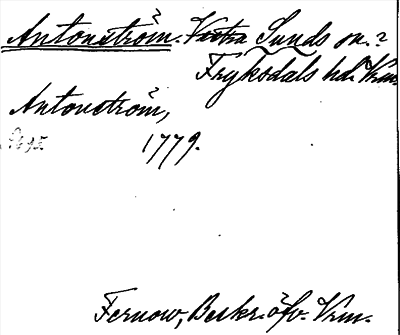 Antonström. Vestra Sunds sn.?
Fryksdals hd. Vrm.
Antonström,
1779.
Fernow, Beskr. öfv. Vrm.